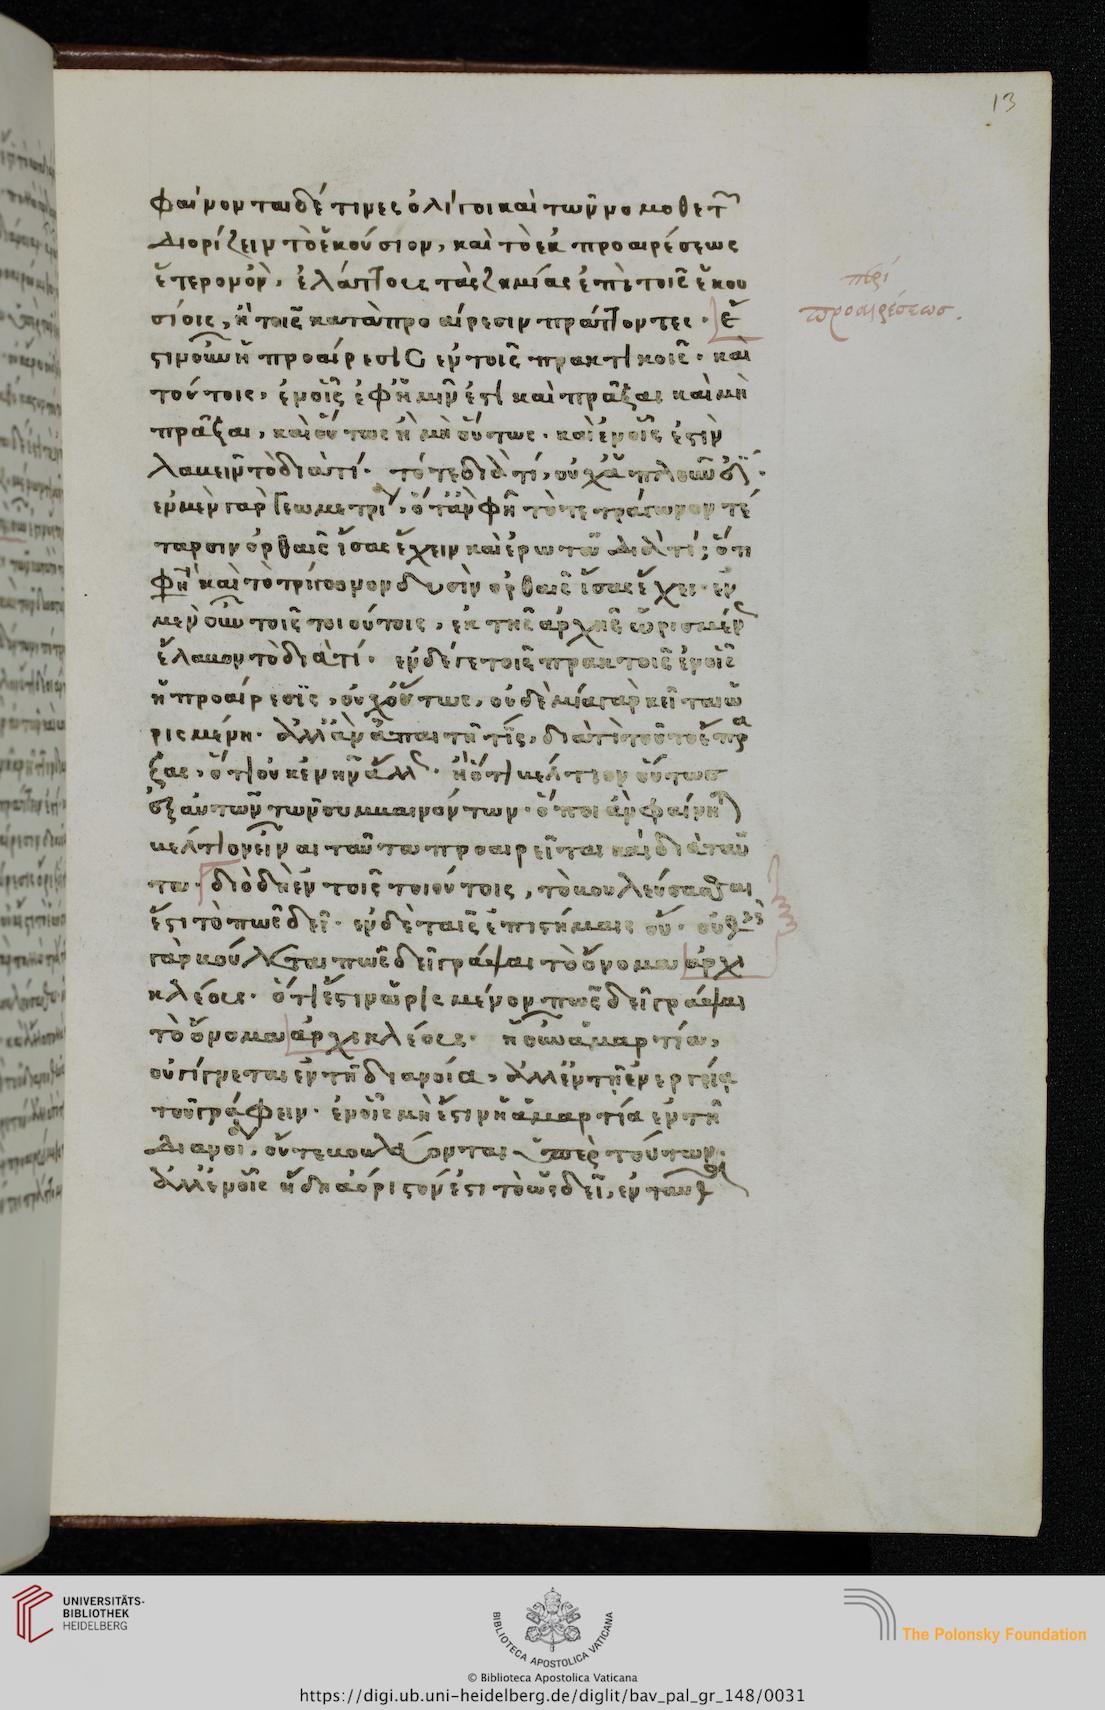 13
φαίνονται δέ τινες ὀλίγοι καὶ τῶν νομοθετ
διορίζειν τὸ ἑκούσιον, καὶ τὸ ἐκ προαιρέσεως
ἕτερον ὄν· ἐλάττους τὰς ζημίας ἐπὶ τοῖς ἑκου
σίοις, ἢ τοῖς κατὰ προαίρεσιν πράττοντες· ἔ
περὶ
προαιρέσεως.
στιν οὖν ἡ προαίρεσις ἐν τοῖς πρακτικοῖς· καὶ
τούτοις, ἐν οἷς ἐφ' ἡμῖν ἐστὶ καὶ πρᾶξαι καὶ μὴ
πρᾶξαι, καὶ οὕτως ἢ μὴ οὕτως· καὶ ἐν οἷς ἐστὶν
λαβεῖν τὸ διὰ τί· τό τε διὰ τί, οὐχ ἁπλοῦν
ἐν μὲν γὰρ γεωμετρί, ὅταν φῇ τὸ τετράγωνον τέ
ταρσιν ὀρθαῖς ἴσας ἔχειν καὶ ἐρωτᾷ διὰ τί; ὅτι
φῇ καὶ τὸ τρίγωνον δυσὶν ὀρθαῖς ἴσας ἔχει· ἐν
μὲν οὖν τοῖς τοιούτοις, ἐκ τῆς ἀρχῆς ὡρισμέν
ἔλαβον τὸ διὰ τί· ἐν δέ γε τοῖς πρακτοῖς ἐν οἷς
ἡ προαίρεσις, οὐχ οὕτως, οὐδεμία γὰρ κεῖται ὡ
ρισμένη· ἀλλ' ἂν ἀπαιτῇ τίς, διὰ τί τοῦτο ἔπρα
ξας, ὅτι οὐκ ἐνῆν ἄλλ· ἢ ὅτι βέλτιον οὕτως
ἐξ αὐτῶν τῶν συμβαινόντων· ὁποῖ ἂν φαίνητ
βελτίον εἶναι ταῦτα προαιρεῖται καὶ διὰ ταῦ
τα· διὸ δὴ ἐν τοῖς τοιούτοις, τὸ βουλεύσασθαι
ἔστι τὸ πῶς δεῖ· ἐν δὲ ταῖς ἐπιστήμαις οὔ· οὐθεὶς
γὰρ βούλεται πῶς δεῖ γράψαι τὸ ὄνομα ἀρχι
κλέους· ὅτι ἔστιν ὡρισμένον πῶς δεῖ γράψαι
τὸ ὄνομα ἀρχικλέους· ἡ οὖν ἁμαρτία,
οὐ γίγνεται ἐν τῇ διανοία, ἀλλ' ἐν τῇ ἐνεργείᾳ
τοῦ γράφειν· ἐν οἷς μὴ ἔστιν ἡ ἁμαρτία ἐν τῇ
διανοί, οὔτε βουλεύονται ὑπὲρ τούτων·
ἀλλ' ἐν οἷς ἤδη ἀόριστον ἐστι τὸ ὡς δεῖ, ἐνταῦθ
UNIVERSITÄTS-
BIBLIOTHEK
HEIDELBERG
BIBLIOTECA APOSTOLICA VATICANA
The Polonsky Foundation
© Biblioteca Apostolica Vaticana
https://digi.ub.uni-heidelberg.de/diglit/bav_pal_gr_148/0031